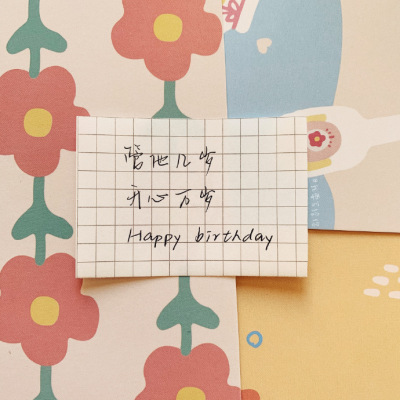 管他几岁
开心万岁
Happy birthday